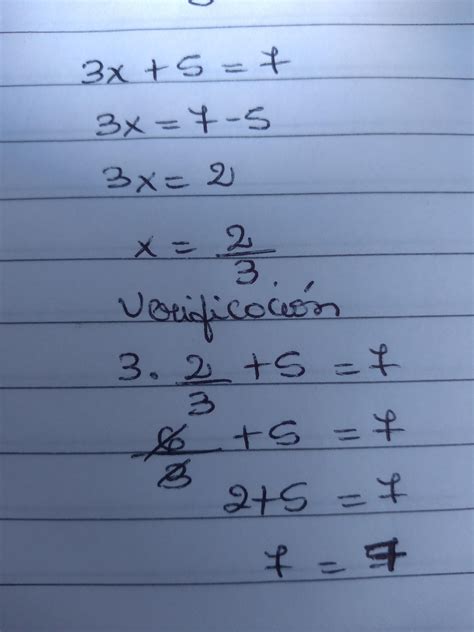 3x + 5 = 7
3x = 7 - 5
3x = 2
x = 2/3
Verificación
3 . 2/3 + 5 = 7
6/3 + 5 = 7
2 + 5 = 7
7 = 7